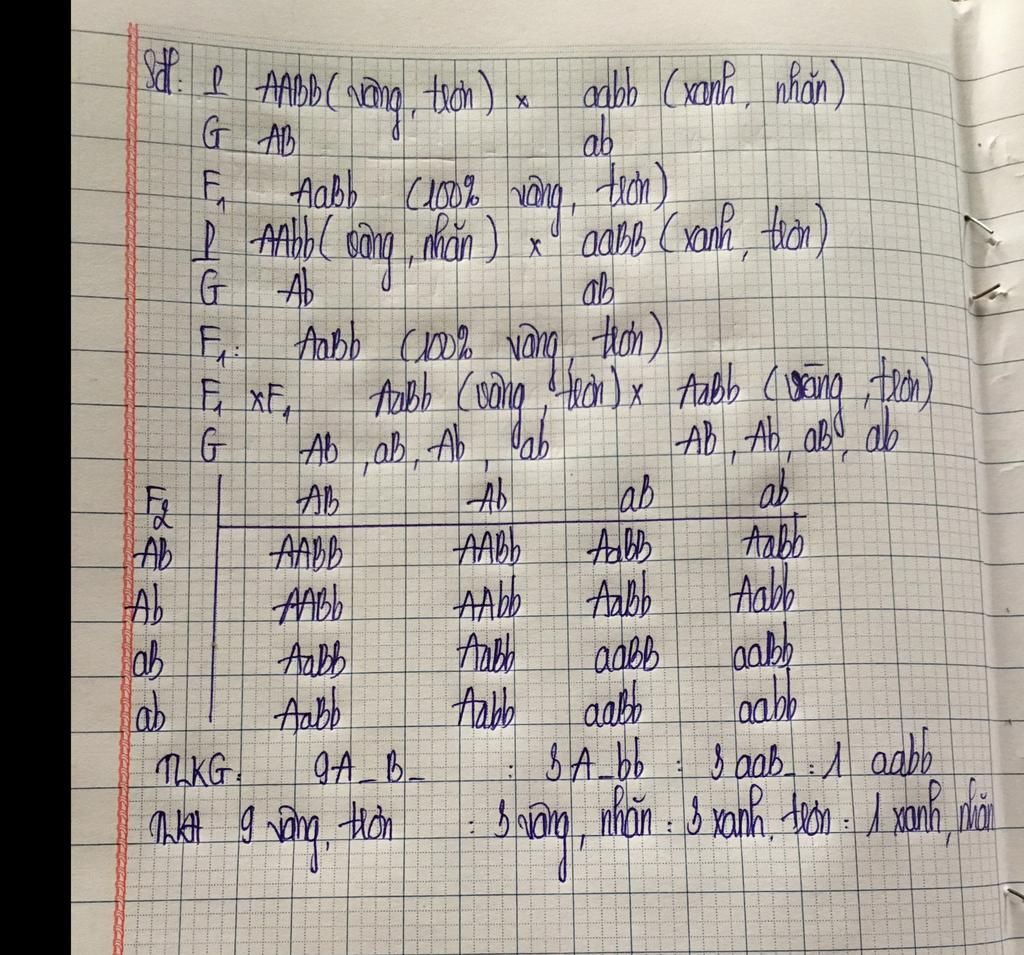 Sđl: P AABB (vàng, trơn) x aabb (xanh, nhăn)
G AB ab
F1 AaBb (100% vàng, trơn)
P AAbb (vàng, nhăn) x aaBB (xanh, trơn)
G Ab aB
F1: AaBb (100% vàng, trơn)
F1 xF1 AaBb (vàng, trơn) x AaBb (vàng, trơn)
G Ab, aB, Ab, ab AB, Ab, aB, ab
F2 AB Ab ab ab
AB AABB AABb AaBB AaBb
Ab AABb AAbb AaBb Aabb
ab AaBb AaBb aaBB aaBb
ab AaBb Aabb aaBb aabb
TLKG: 9A_B_ : 3A_bb : 3aaB_ : 1 aabb
TLKH 9 vàng, trơn : 3 vàng, nhăn : 3 xanh, trơn : 1 xanh, nhăn